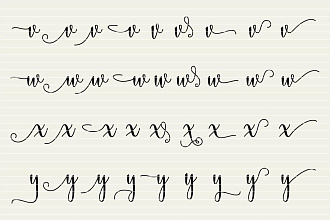 v v v v v v v v v
w w w w w w w w w
x x x x x x x x x
y y y y y y y y y